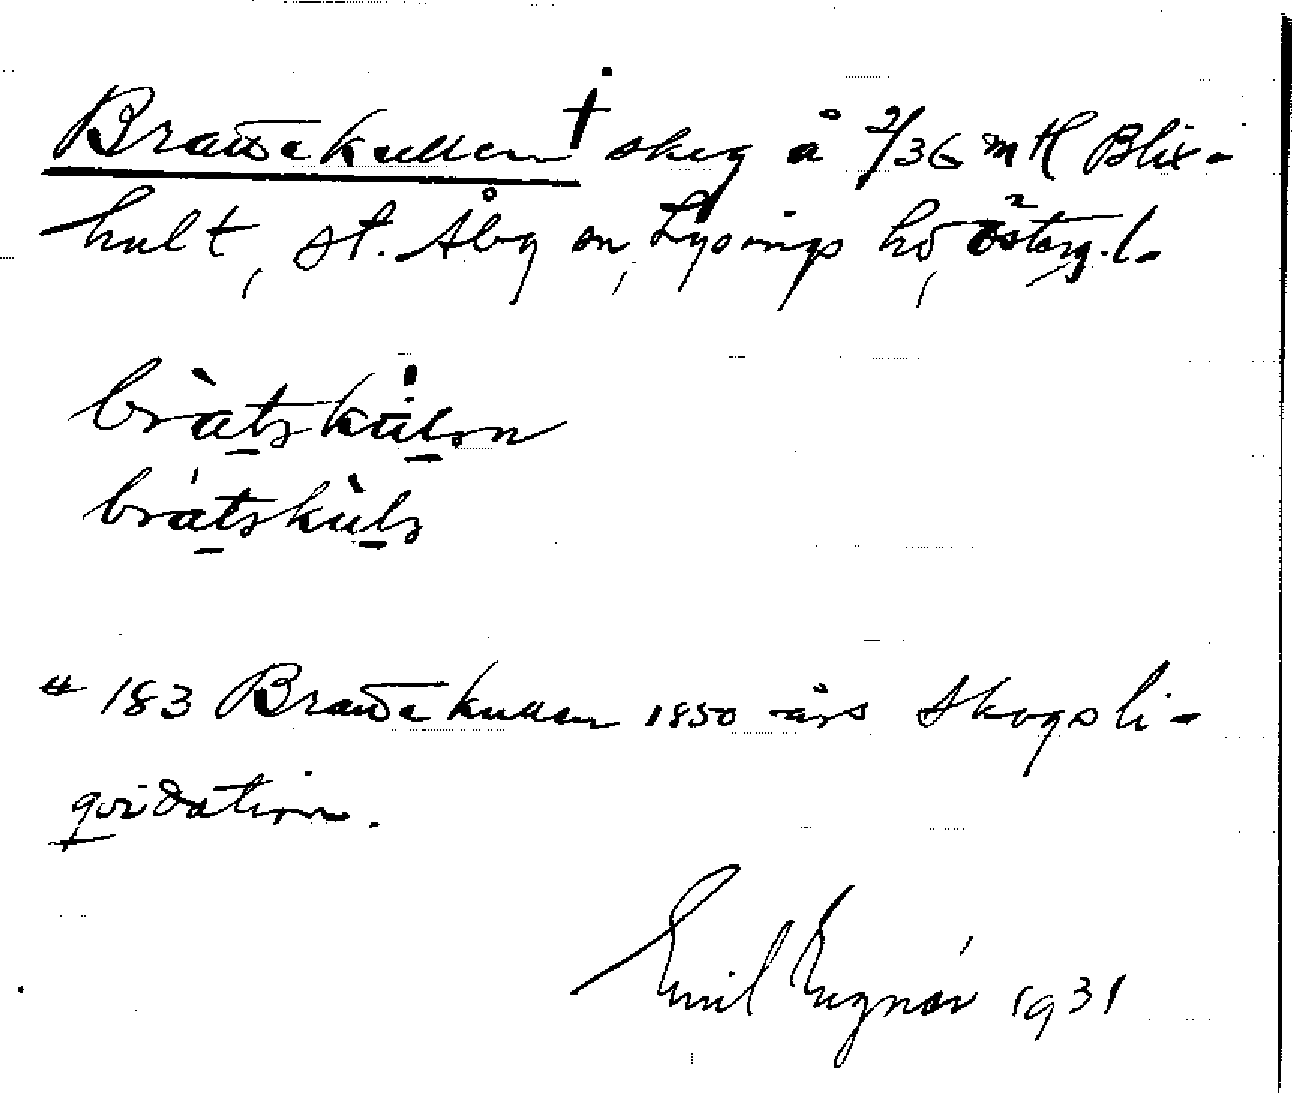 Bratzekullen † skog å 2/36 mtl Blix-
hult, st. Åby sn, Lysings hd, Österg.l.
bràtskùlon
brátskùls
# 183 Bratzekullen 1850 års Skogsli-
qvidation.
Emil 1931